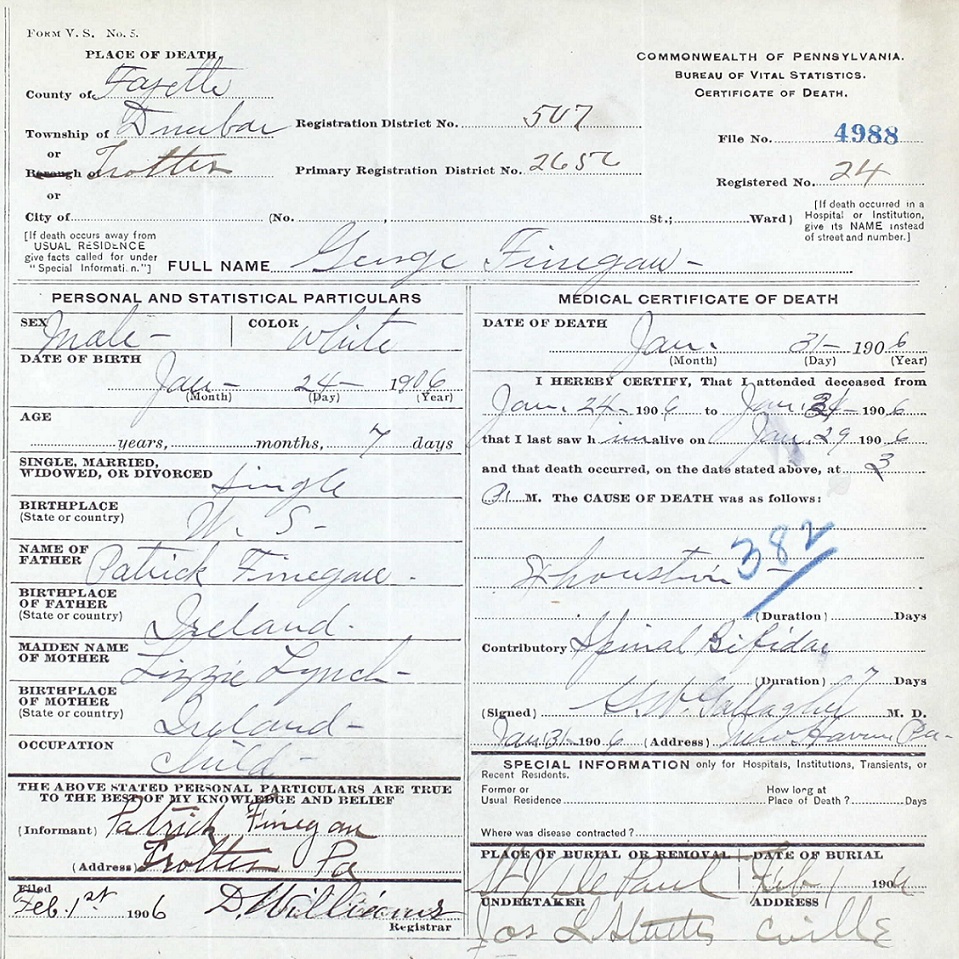 FORM V. S. No. 5.
PLACE OF DEATH.
County of Fayette
Township of Dunbar
or
Borough of Trotter
or
City of (No. , St.; Ward)
COMMONWEALTH OF PENNSYLVANIA.
BUREAU OF VITAL STATISTICS.
CERTIFICATE OF DEATH.
Registration District No. 507
Primary Registration District No. 2656
File No. 4988
Registered No. 24
[If death occurred in a
Hospital or Institution,
give its NAME instead
of street and number.]
[If death occurs away from
USUAL RESIDENCE
give facts called for under
"Special Information."]
FULL NAME George Finegan -
PERSONAL AND STATISTICAL PARTICULARS
SEX Male -
COLOR White
DATE OF BIRTH
Jan - 24 - 1906
(Month) (Day) (Year)
AGE
years, months, 7 days
SINGLE, MARRIED,
WIDOWED, OR DIVORCED Single
BIRTHPLACE
(State or country) U. S -
NAME OF
FATHER Patrick Finegan -
BIRTHPLACE
OF FATHER
(State or country) Ireland -
MAIDEN NAME
OF MOTHER Lizzie Lynch -
BIRTHPLACE
OF MOTHER
(State or country) Ireland -
OCCUPATION
Child -
THE ABOVE STATED PERSONAL PARTICULARS ARE TRUE
TO THE BEST OF MY KNOWLEDGE AND BELIEF
(Informant) Patrick Finegan
(Address) Trotter Pa
Filed
Feb. 1st 1906 D. Williams
Registrar
MEDICAL CERTIFICATE OF DEATH
DATE OF DEATH
Jan. 31 - 1906
(Month) (Day) (Year)
I HEREBY CERTIFY, That I attended deceased from
Jan. 24 - 1906 to Jan. 31 - 1906
that I last saw him alive on Jan. 29 1906
and that death occurred, on the date stated above, at 3
M. The CAUSE OF DEATH was as follows:
382
Exhoustion
(Duration) Days
Contributory Spinal Bifidae
(Duration) 7 Days
(Signed) Gallagher M. D.
Jan 31 - 1906 (Address) New Haven Pa -
SPECIAL INFORMATION only for Hospitals, Institutions, Transients, or
Recent Residents.
Former or
Usual Residence
How long at
Place of Death? Days
Where was disease contracted?
PLACE OF BURIAL OR REMOVAL
St V de Paul
DATE OF BURIAL
Feb - 1 1906
UNDERTAKER
Jos L
ADDRESS
Cville